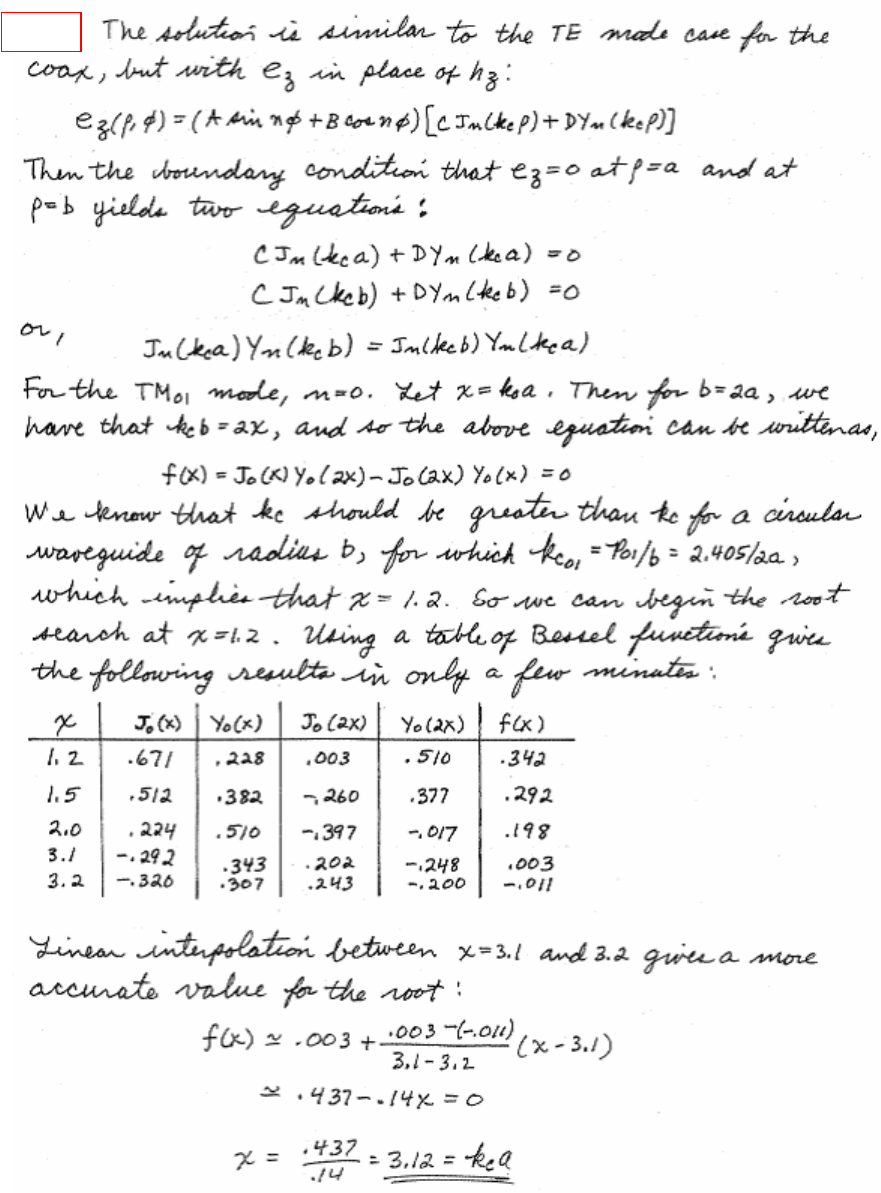 The solution is similar to the TE mode case for the
coax, but with e_z in place of h_z:
e_z(ρ,φ) = (A sin nφ + B cos nφ)[C J_n(k_cρ) + D Y_n(k_cρ)]
Then the boundary condition that e_z = 0 at ρ=a and at
ρ=b yields two equations:
C J_n(k_c a) + D Y_n(k_c a) = 0
C J_n(k_c b) + D Y_n(k_c b) = 0
or,
J_n(k_c a) Y_n(k_c b) = J_n(k_c b) Y_n(k_c a)
For the TM_01 mode, n=0. Let x = k_c a. Then for b=2a, we
have that k_c b = 2x, and so the above equation can be written as,
f(x) = J_0(x) Y_0(2x) - J_0(2x) Y_0(x) = 0
We know that k_c should be greater than k_c for a circular
waveguide of radius b, for which k_c01 = P_01/b = 2.405/2a,
which implies that x = 1.2. So we can begin the root
search at x=1.2. Using a table of Bessel functions gives
the following results in only a few minutes:
x J_0(x) Y_0(x) J_0(2x) Y_0(2x) f(x)
1.2 .671 .228 .003 .510 .342
1.5 .512 .382 -.260 .377 .292
2.0 .224 .510 -.397 -.017 .198
3.1 -.292 .343 .202 -.248 .003
3.2 -.320 .307 .243 -.200 -.011
Linear interpolation between x=3.1 and 3.2 gives a more
accurate value for the root:
f(x) ≃ .003 + .003-(-.011)/3.1-3.2 (x-3.1)
≃ .437 - .14x = 0
x = .437/.14 = 3.12 = k_c a